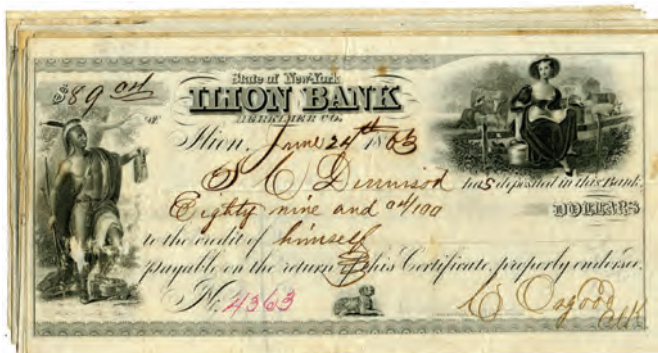 $89 04
State of New-York
ILION BANK
HERKIMER CO.
Ilion, June 24th 1863
S C Dennison has deposited in this Bank
Eighty nine and 04/100 DOLLARS
to the credit of himself
payable on the return of this Certificate, properly endorsed.
No. 4363
C Osgood